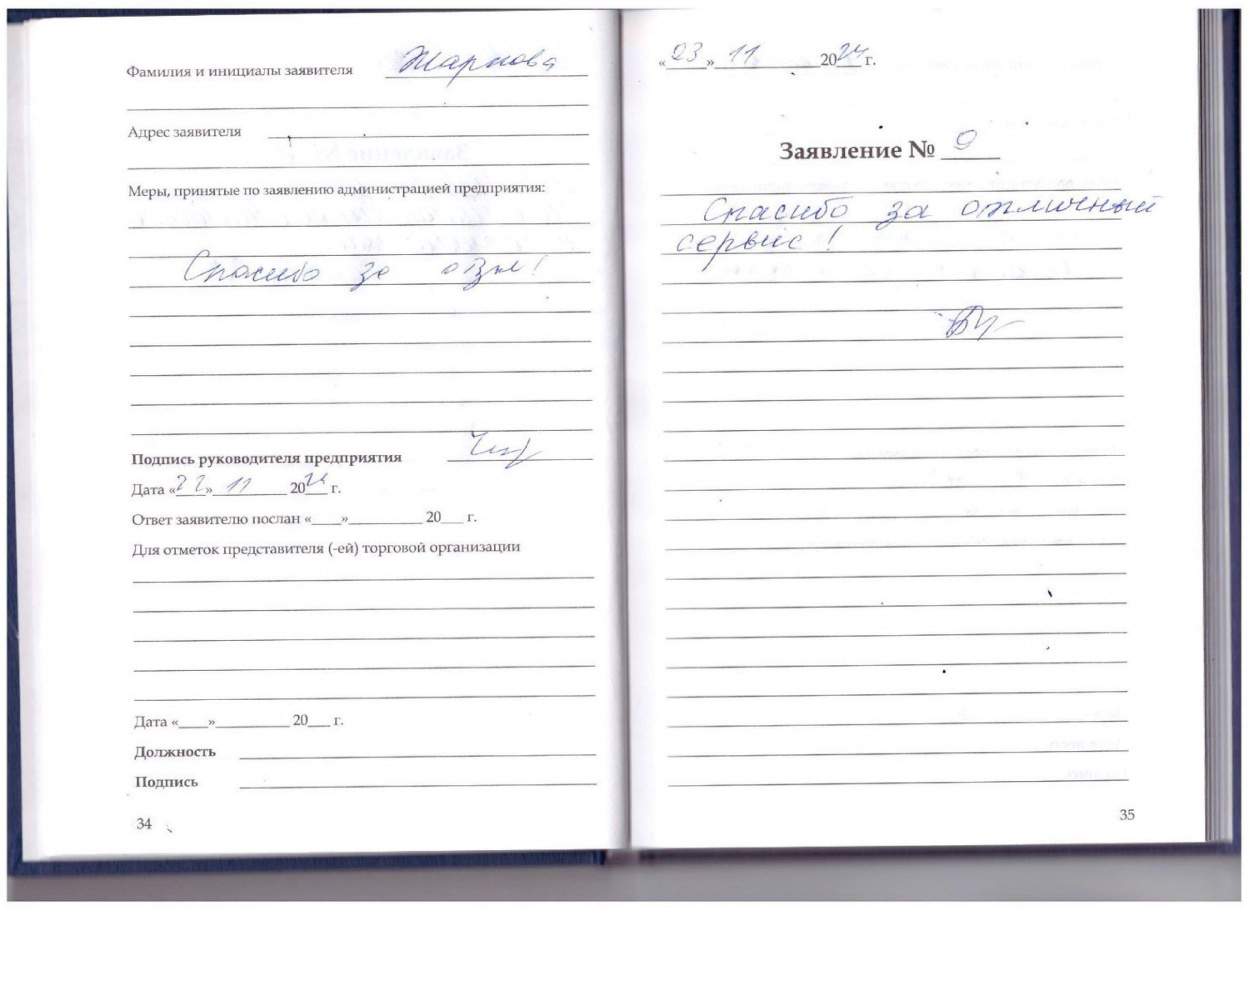 Фамилия и инициалы заявителя Жарнова
Адрес заявителя
Меры, принятые по заявлению администрацией предприятия:
Спасибо за отзыв!
Подпись руководителя предприятия
Дата «22» 11 2024 г.
Ответ заявителю послан «____»__________ 20___ г.
Для отметок представителя (-ей) торговой организации
Дата «____»__________ 20___ г.
Должность
Подпись
34
«23» 11 2024 г.
Заявление № 9
Спасибо за отличный
сервис!
35